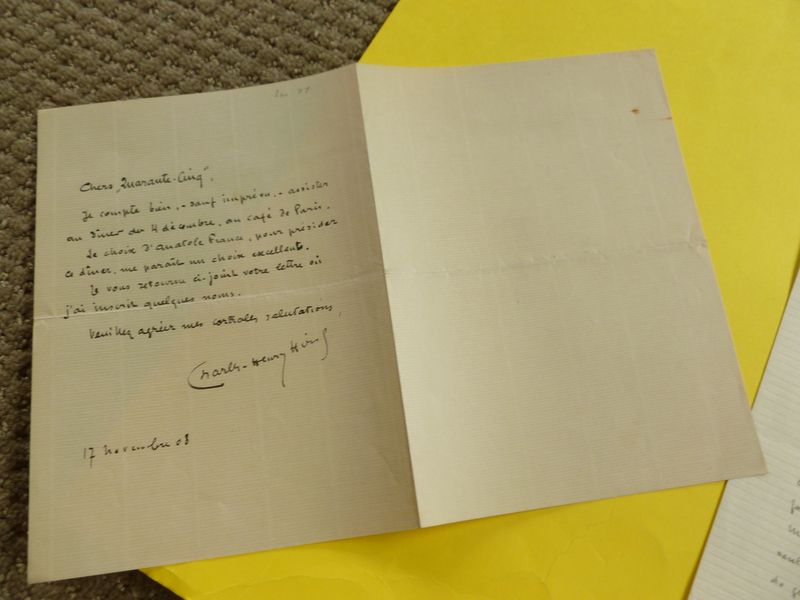 Chers "Quarante-Cinq",
Je compte bien, - sauf imprévu, - assister
au dîner du 4 décembre, au café de Paris.
Le choix d'Anatole France, pour présider
ce dîner, me paraît un choix excellent.
Je vous retourne ci-joint votre lettre où
j'ai inscrit quelques noms.
Veuillez agréer mes cordiales salutations,
Charles-Henry Hirsch
17 novembre 08